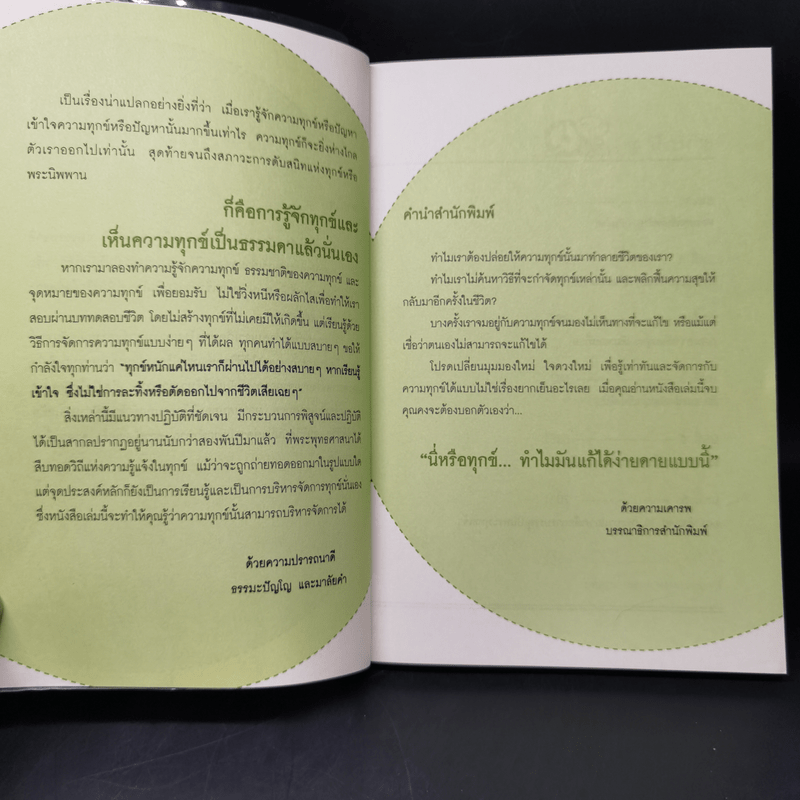 เป็นเรื่องน่าแปลกอย่างยิ่งที่ว่า เมื่อเรารู้จักความทุกข์หรือปัญหา
เข้าใจความทุกข์หรือปัญหานั้นมากขึ้นเท่าไร ความทุกข์ก็จะยิ่งห่างไกล
ตัวเราออกไปเท่านั้น สุดท้ายจนถึงสภาวะการดับสนิทแห่งทุกข์หรือ
พระนิพพาน
ก็คือการรู้จักทุกข์และ
เห็นความทุกข์เป็นธรรมดาแล้วนั่นเอง
หากเรามาลองทำความรู้จักความทุกข์ ธรรมชาติของความทุกข์ และ
จุดหมายของความทุกข์ เพื่อยอมรับ ไม่ใช่วิ่งหนีหรือผลักไสเพื่อทำให้เรา
สอบผ่านบททดสอบชีวิต โดยไม่สร้างทุกข์ที่ไม่เคยมีให้เกิดขึ้น แต่เรียนรู้ด้วย
วิธีการจัดการความทุกข์แบบง่ายๆ ที่ได้ผล ทุกคนทำได้แบบสบายๆ ขอให้
กำลังใจทุกท่านว่า "ทุกข์หนักแค่ไหนเราก็ผ่านไปได้อย่างสบายๆ หากเรียนรู้
เข้าใจ ซึ่งไม่ใช่การละทิ้งหรือตัดออกไปจากชีวิตเสียเฉยๆ"
สิ่งเหล่านี้มีแนวทางปฏิบัติที่ชัดเจน มีกระบวนการพิสูจน์และปฏิบัติ
ได้เป็นสากลปรากฏอยู่นานนับกว่าสองพันปีมาแล้ว ที่พระพุทธศาสนาได้
สืบทอดวิถีแห่งความรู้แจ้งในทุกข์ แม้ว่าจะถูกถ่ายทอดออกมาในรูปแบบใด
แต่จุดประสงค์หลักก็ยังเป็นการเรียนรู้และเป็นการบริหารจัดการทุกข์นั่นเอง
ซึ่งหนังสือเล่มนี้จะทำให้คุณรู้ว่าความทุกข์นั้นสามารถบริหารจัดการได้
ด้วยความปรารถนาดี
ธรรมะปัญโญ และมาลัยคำ
คำนำสำนักพิมพ์
ทำไมเราต้องปล่อยให้ความทุกข์นั้นมาทำลายชีวิตของเรา?
ทำไมเราไม่ค้นหาวิธีที่จะกำจัดทุกข์เหล่านั้น และพลิกฟื้นความสุขให้
กลับมาอีกครั้งในชีวิต?
บางครั้งเราจมอยู่กับความทุกข์จนมองไม่เห็นทางที่จะแก้ไข หรือแม้แต่
เชื่อว่าตนเองไม่สามารถจะแก้ไขได้
โปรดเปลี่ยนมุมมองใหม่ ใจดวงใหม่ เพื่อรู้เท่าทันและจัดการกับ
ความทุกข์ได้แบบไม่ใช่เรื่องยากเย็นอะไรเลย เมื่อคุณอ่านหนังสือเล่มนี้จบ
คุณคงจะต้องบอกตัวเองว่า...
"นี่หรือทุกข์... ทำไมมันแก้ได้ง่ายดายแบบนี้"
ด้วยความเคารพ
บรรณาธิการสำนักพิมพ์